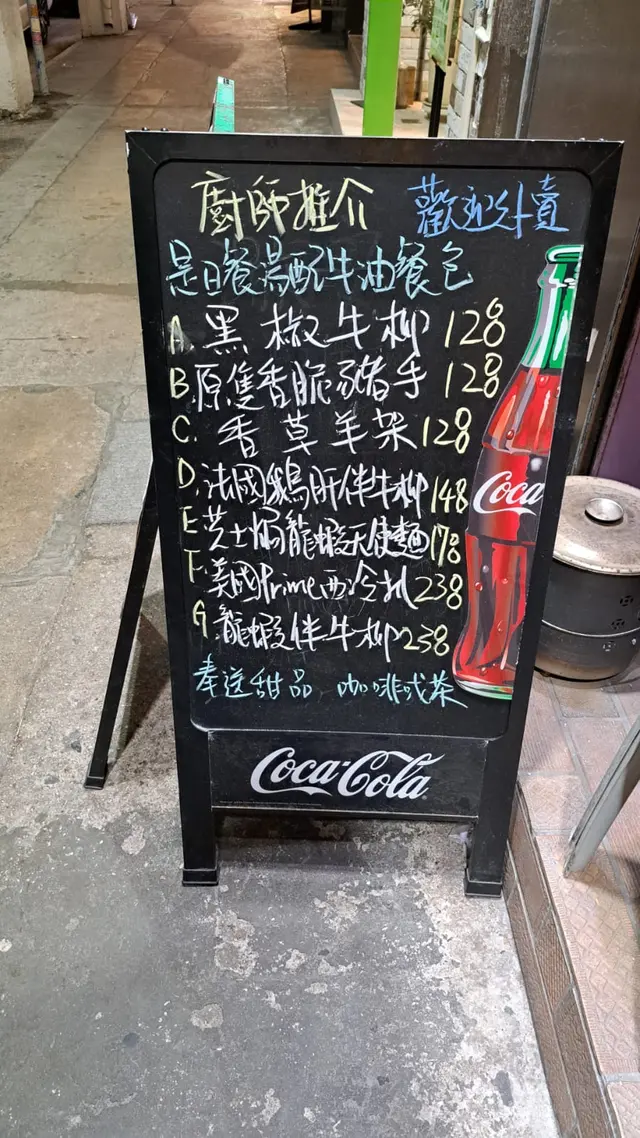 廚師推介 歡迎外賣
是日餐湯配牛油餐包
A. 黑椒牛柳 128
B. 原隻香脆豬手 128
C. 香草羊架 128
D. 法國鵝肝伴牛柳 148
E 芝士焗龍蝦天使麵 178
F. 美國Prime西冷扒 238
G. 龍蝦伴牛柳 238
奉送甜品 咖啡或茶
Coca
Coca-Cola